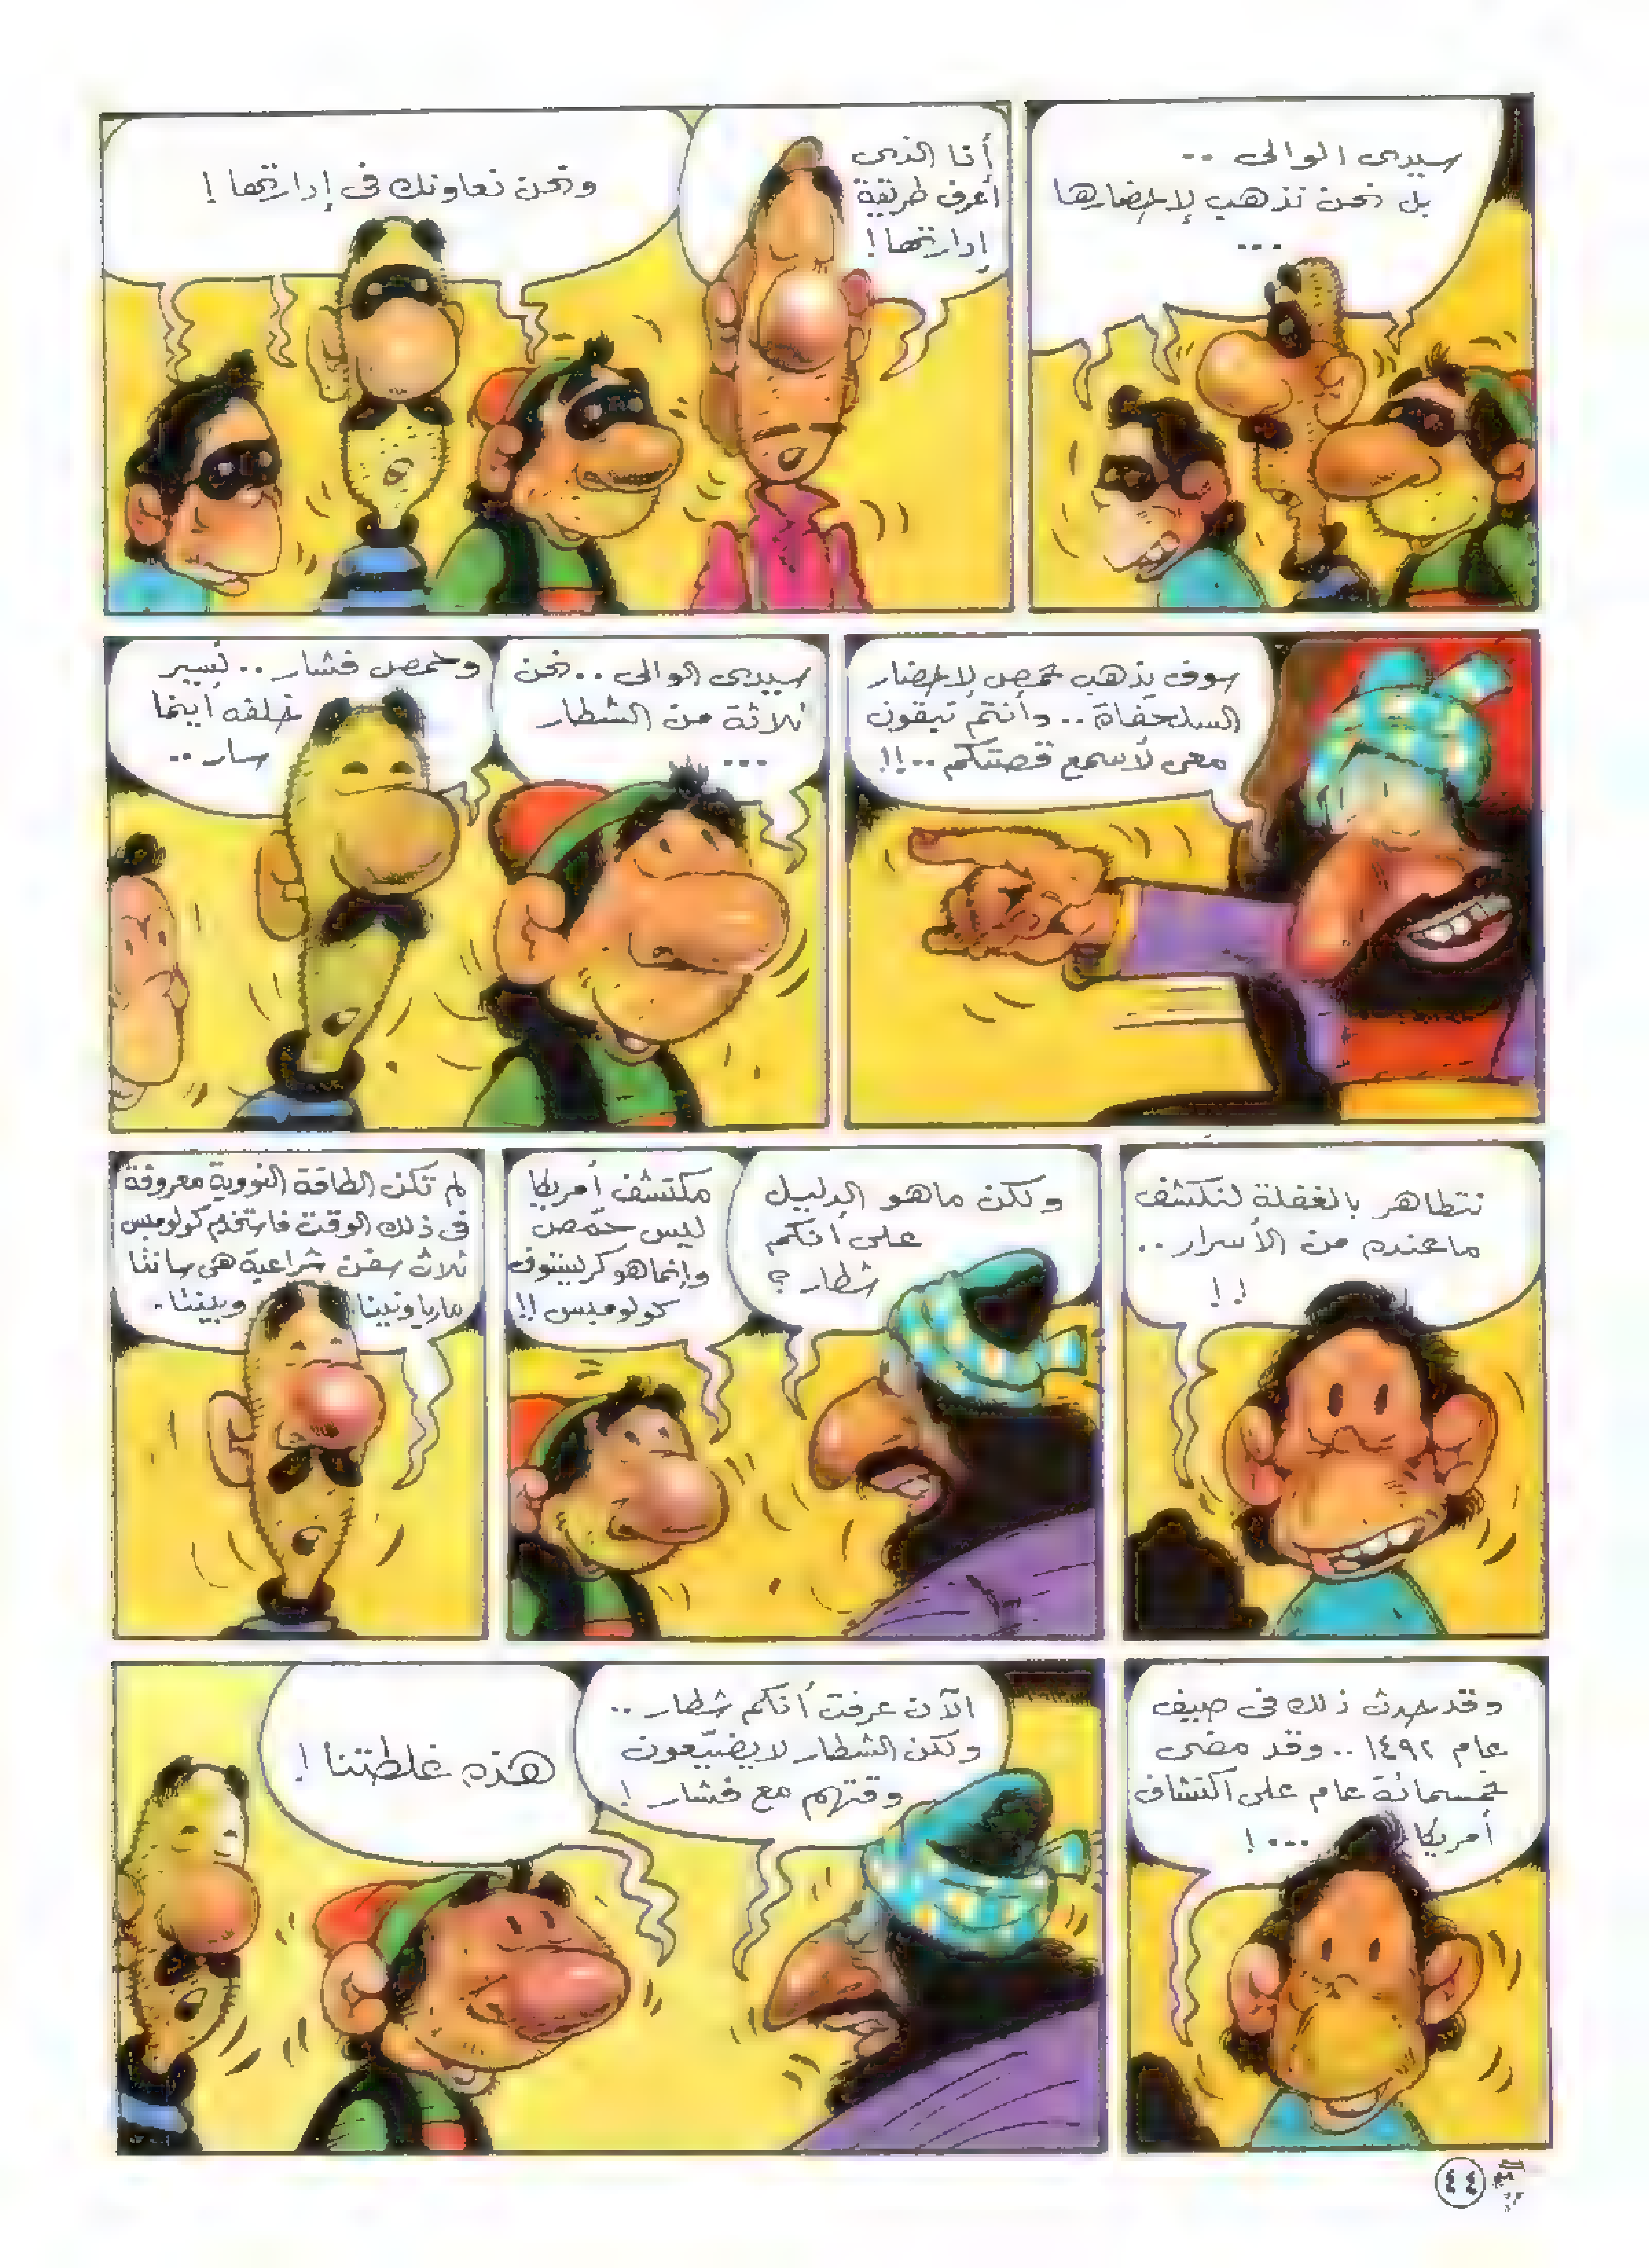 سيدى الوالى ..
بل نحن نذهب لإحضارها
...
أنا الذى
أعرف طريقة
إدارتها !
ونحن نعاونك فى إدارتها !
سوف يذهب حمص لإحضار
السلحفاة .. وأنتم تبقون
معى لأسمع قصتكم ..!!
سيدى الوالى .. نحن
ثلاثة من الشطار
...
وحمص فشار .. نسير
خلفه أينما
سار ..
نتظاهر بالغفلة لنكشف
ماعنده من الأسرار ..
!!
ولكن ماهو الدليل
على أنكم
شطار ؟
مكتشف أمريكا
ليس حمّص
وإنما هو كريستوف
كولومبس !!
لم تكن الطاقة النووية معروفة
فى ذلك الوقت فاستخدم كولومبس
ثلاث سفن شراعية هى سانتا
ماريا ونينا وبينتا .
وقد حدث ذلك فى صيف
عام ١٤٩٢ .. وقد مضى
خمسمائة عام على اكتشاف
أمريكا ...!
الآن عرفت أنكم شطار ..
ولكن الشطار لا يضيّعون
وقتهم مع فشار !
هذه غلطتنا !
٤٤